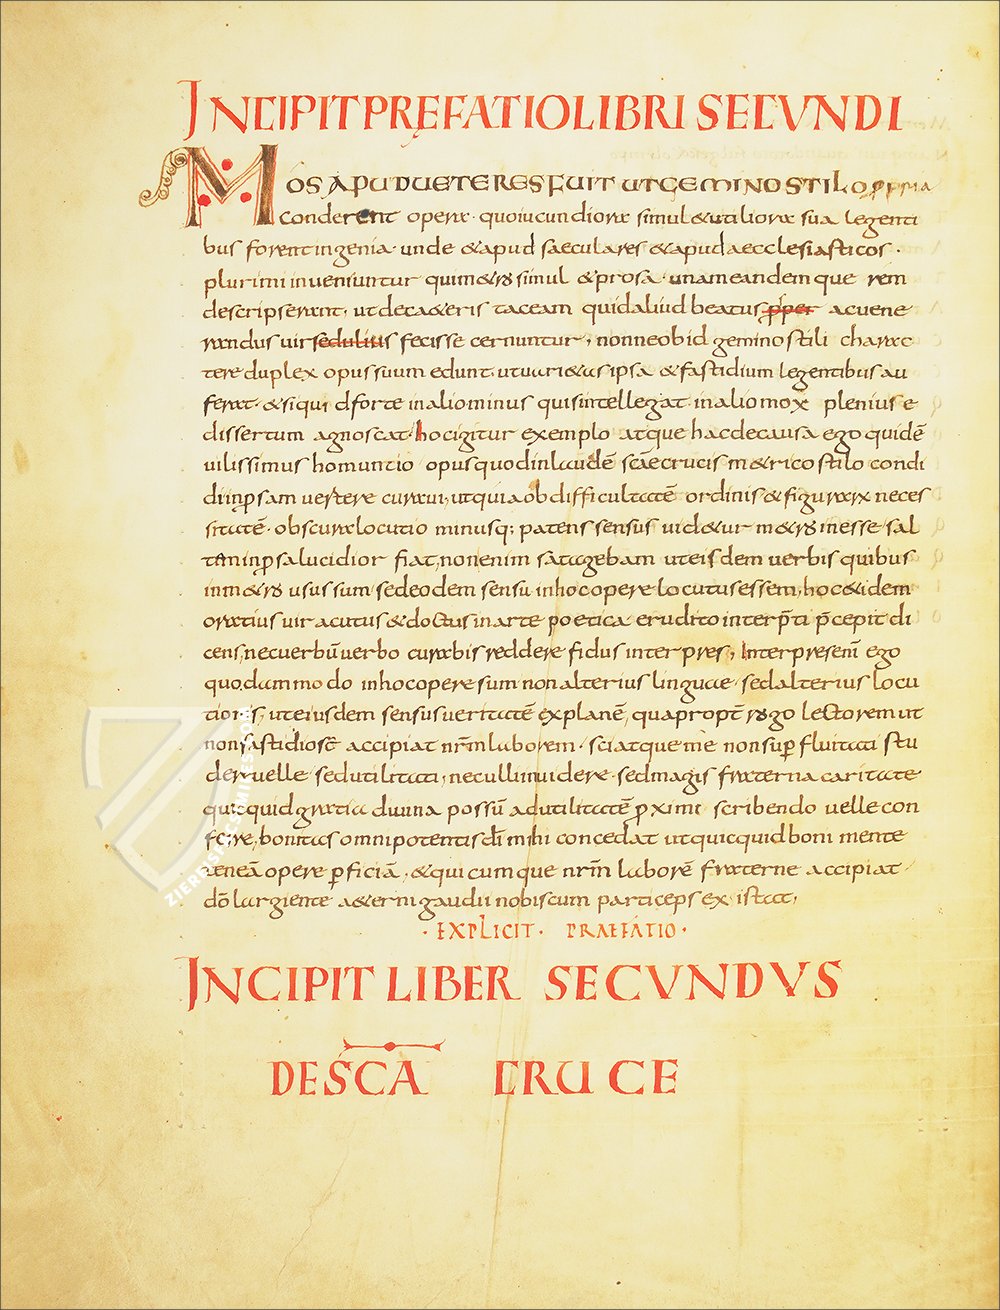 INCIPIT PRĘFATIO LIBRI SECVNDI
MOS APUD UETERES FUIT UT GEMINO STILO PROPRIA
conderent opera· quo iucundiora simul & utiliora sua legenti
bus forent ingenia· unde & apud saeculares & apud aecclesiasticos·
plurimi inueniuntur qui m&ro simul & prosa· unam eandemque rem
descripserant· ut de ca&eris taceam quid aliud beatus p̄per ac uene
randus uir sedulius fecisse cernuntur, non ne ob id gemino stili charac
tere duplex opus suum edunt· ut uari&as ipsa & fastidium legentibus au
ferat· & si quid forte in alio minus quis intellegat· in alio mox plenius e
dissertum agnoscat· hoc igitur exemplo atque hac de causa ego quidē
uilissimus homuntio opus quod in laudē scāe crucis m&rico stilo condi
di in p̄sam uertere curaui, ut quia ob difficultatē ordinis & figurarx neces
sitatē· obscura locutio minusq; patens sensus uid&ur m&ro inesse· sal
tem in p̄sa lucidior fiat, non enim satagebam ut eisdem uerbis quibus
in m&ro usus sum· sed eodem sensu in hoc opere locutus essem, hoc & idem
oratius uir acutus & doctus in arte poetica erudito interp̄ti p̄cepit di
cens, nec uerbū uerbo curabis reddere fidus interpres, Interpres enī ego
quodammodo in hoc opere sum non alterius linguae· sed alterius locu
tionis, ut eiusdem sensus ueritatē explanē, quapropt̄ rogo lectorem ut
non fastidioscē accipiat nr̄m laborem· sciatque me non sup̄fluitati stu
dere uelle sed utilitati, nec ulli inuidere· sed magis fraterna caritate
quicquid gratia diuina possū ad utilitatē p̄ximi scribendo uelle con
ferre, bonitas omnipotentis dī mihi concedat ut quicquid boni mente
teneā opere p̄ficiā, & quicumque nr̄m laborē fraterne accipiat·
dō largiente a&erni gaudii nobiscum particeps existat,
· EXPLICIT · PRAEFATIO ·
INCIPIT LIBER SECVNDVS
DE SCA CRUCE
ZIEREIS FACSIMILES.COM